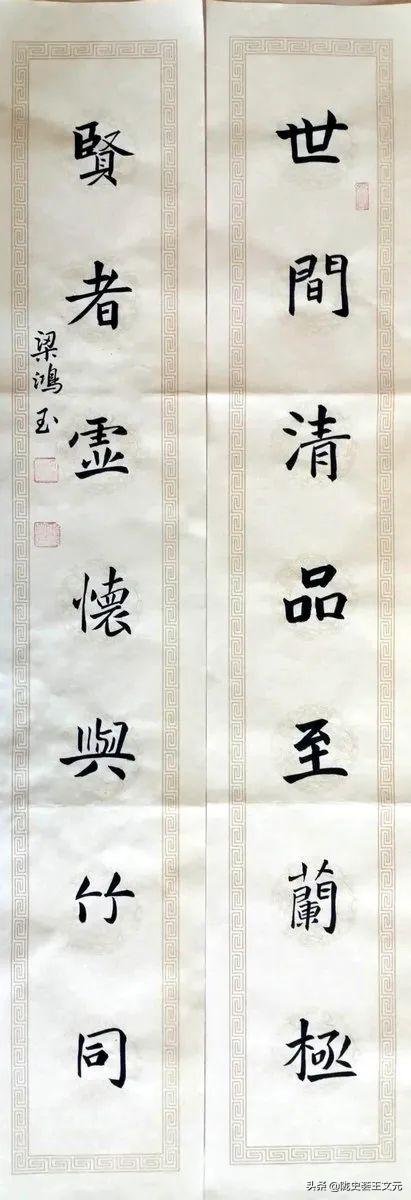 世間清品至蘭極
賢者虛懷與竹同
梁鴻玉
头条@陇史荟王文元